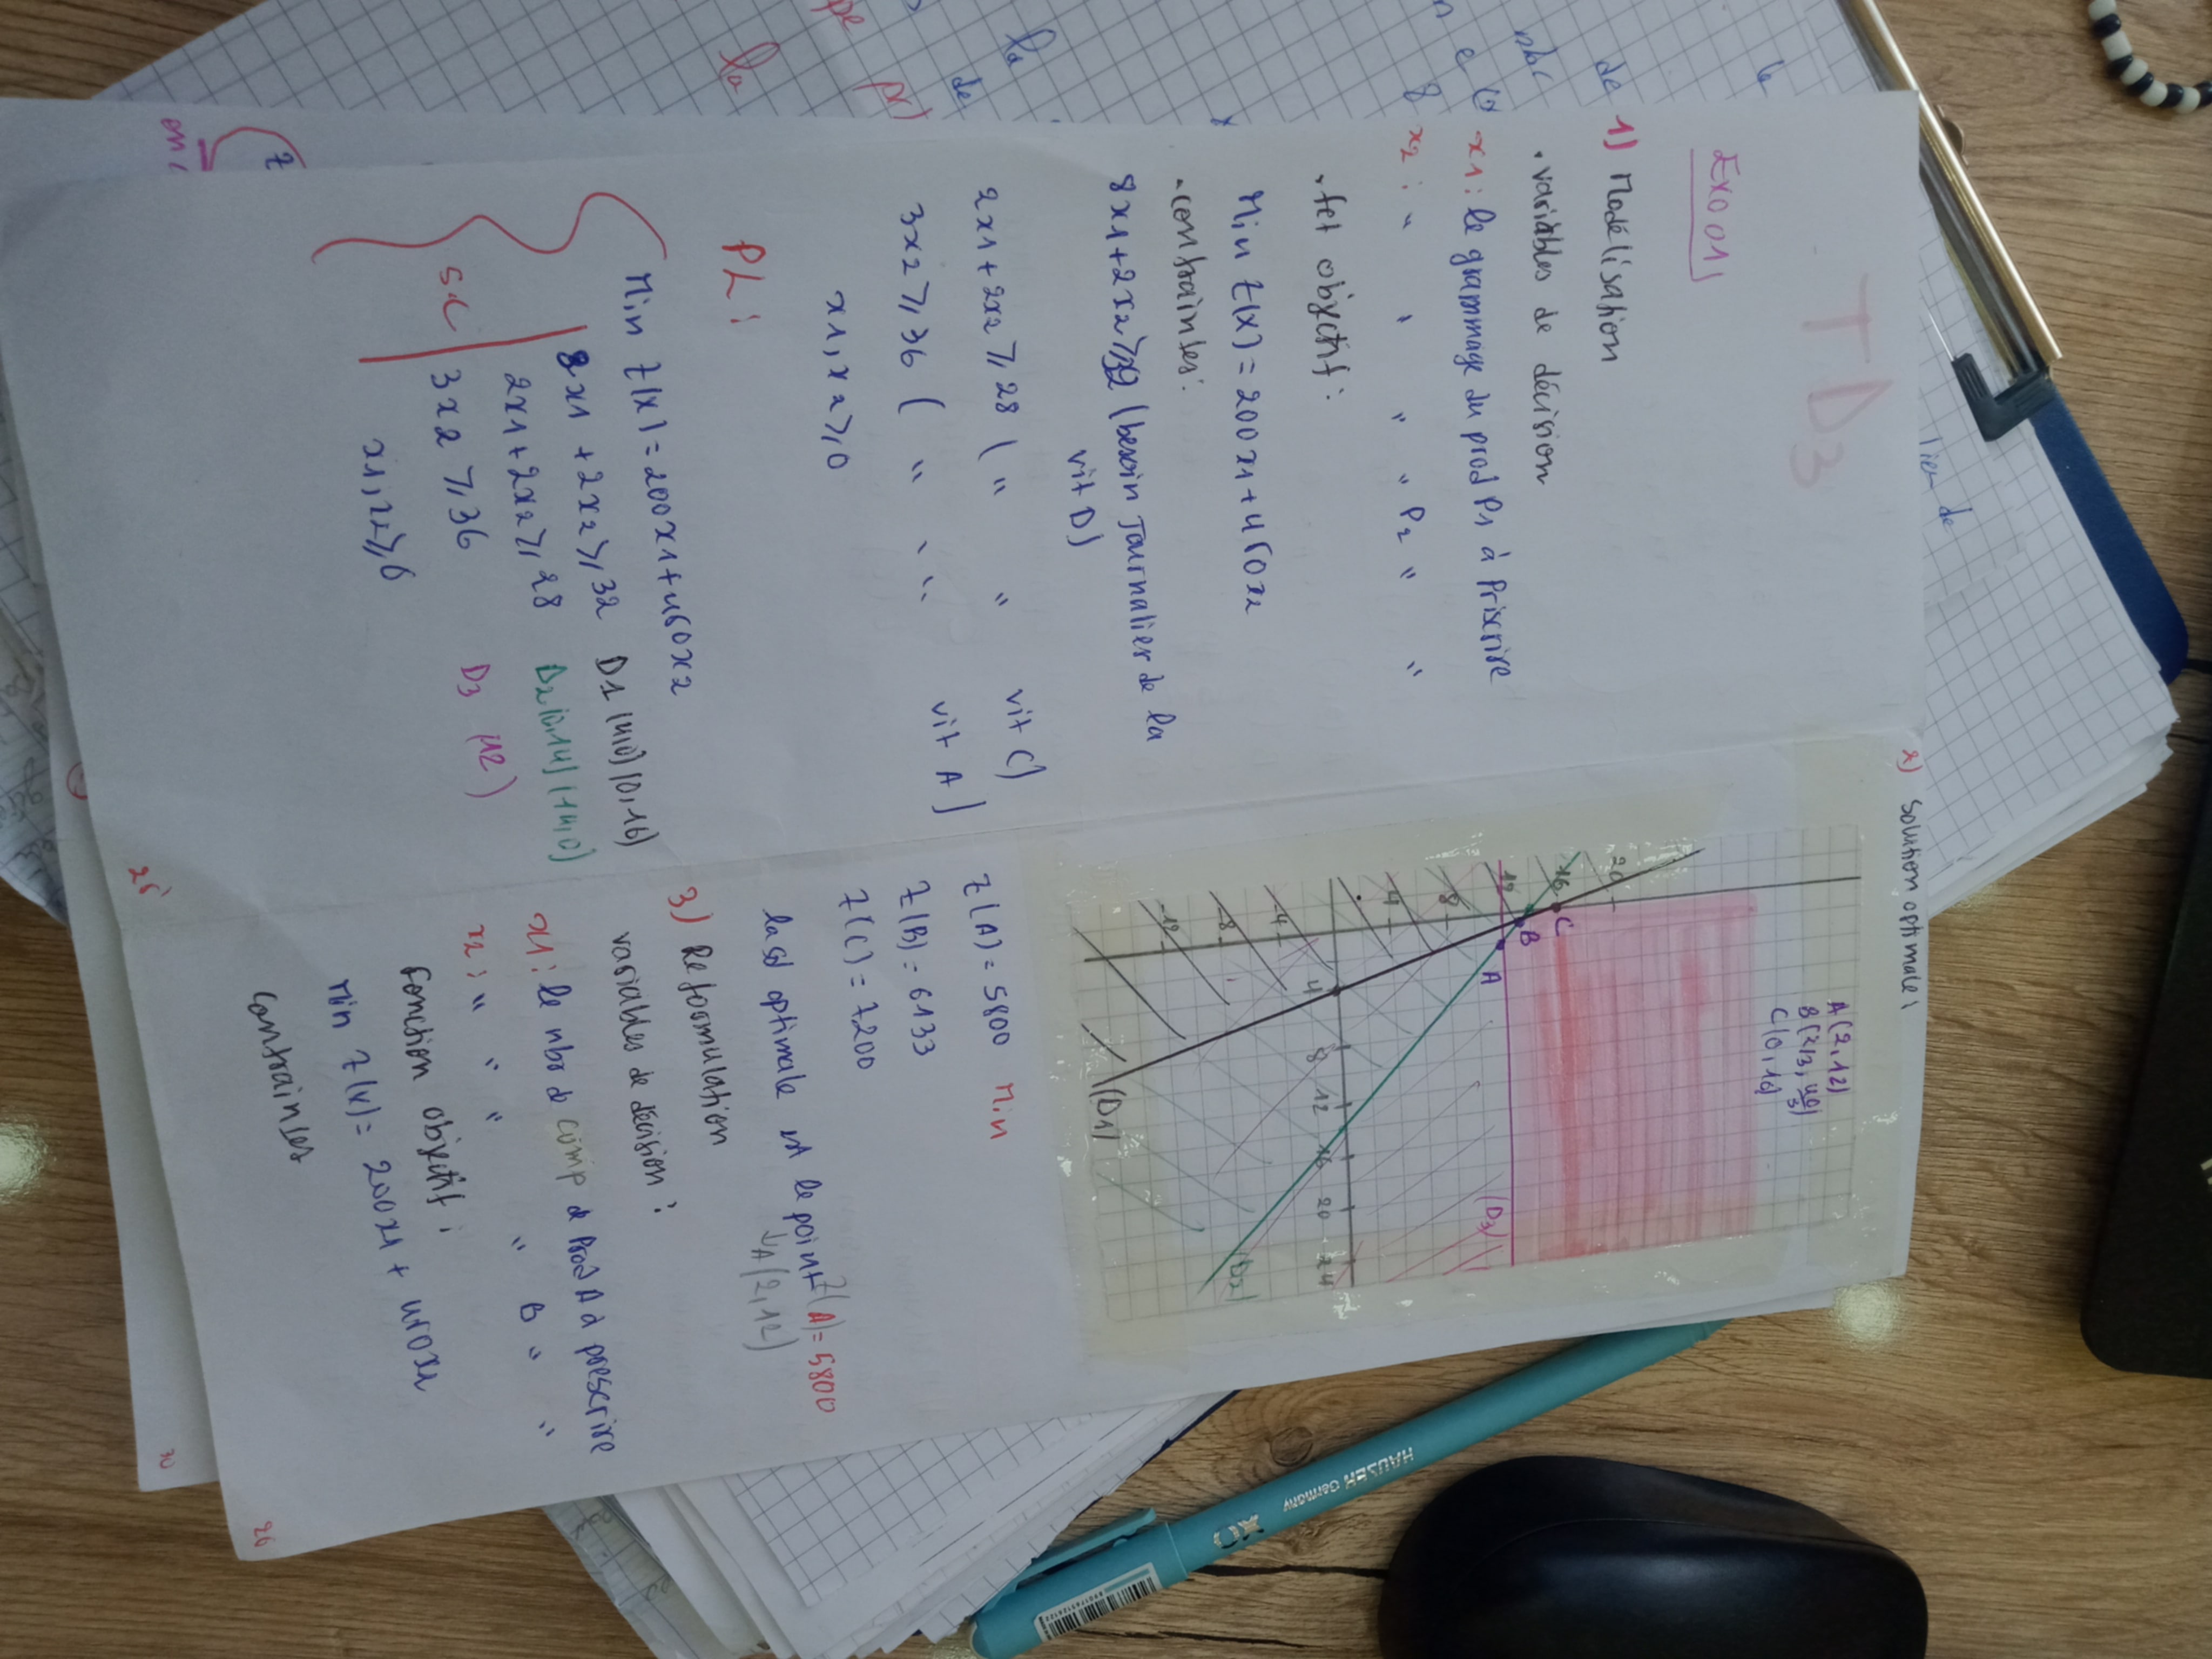 lien de
TD3
Exo 01)
1) Modélisation
. variables de décision
x1 : le grammage du prod P1 à Priscrire
x2 : " " " " P2 " "
. fct objectif :
Min Z(X) = 200x1 + 450x2
. contraintes :
8x1 + 2x2 ≥ 32 (besoin Journalier de la
vit D)
2x1 + 2x2 ≥ 28 ( " " vit C)
3x2 ≥ 36 ( " " " vit A)
x1, x2 ≥ 0
PL :
Min Z(x) = 200x1 + 450x2
8x1 + 2x2 ≥ 32 D1 (4,0) (0,16)
2x1 + 2x2 ≥ 28 D2 (0,14) (14,0)
s.c 3x2 ≥ 36 D3 (12)
x1, x2 ≥ 0
25
2) Solution optimale :
A(2,12)
B(2/3, 40/3)
C(0,16)
20
16 C
B
12 A (D3)
8
4
4 8 12 16 20 24
-4
-8 (D2)
-12
(D1)
Z(A) = 5800 Min
Z(B) = 6133
Z(C) = 7200
la sol optimale est le point Z(A) = 5800
↓A(2,12)
3) Reformulation
variables de décision :
x1 : le nbr de comp de Prod A à prescrire
x2 : " " " " B " "
Fonction objectif :
Min Z(x) = 200x1 + 450x2
Contraintes
26
30
HAUSER Germany XO